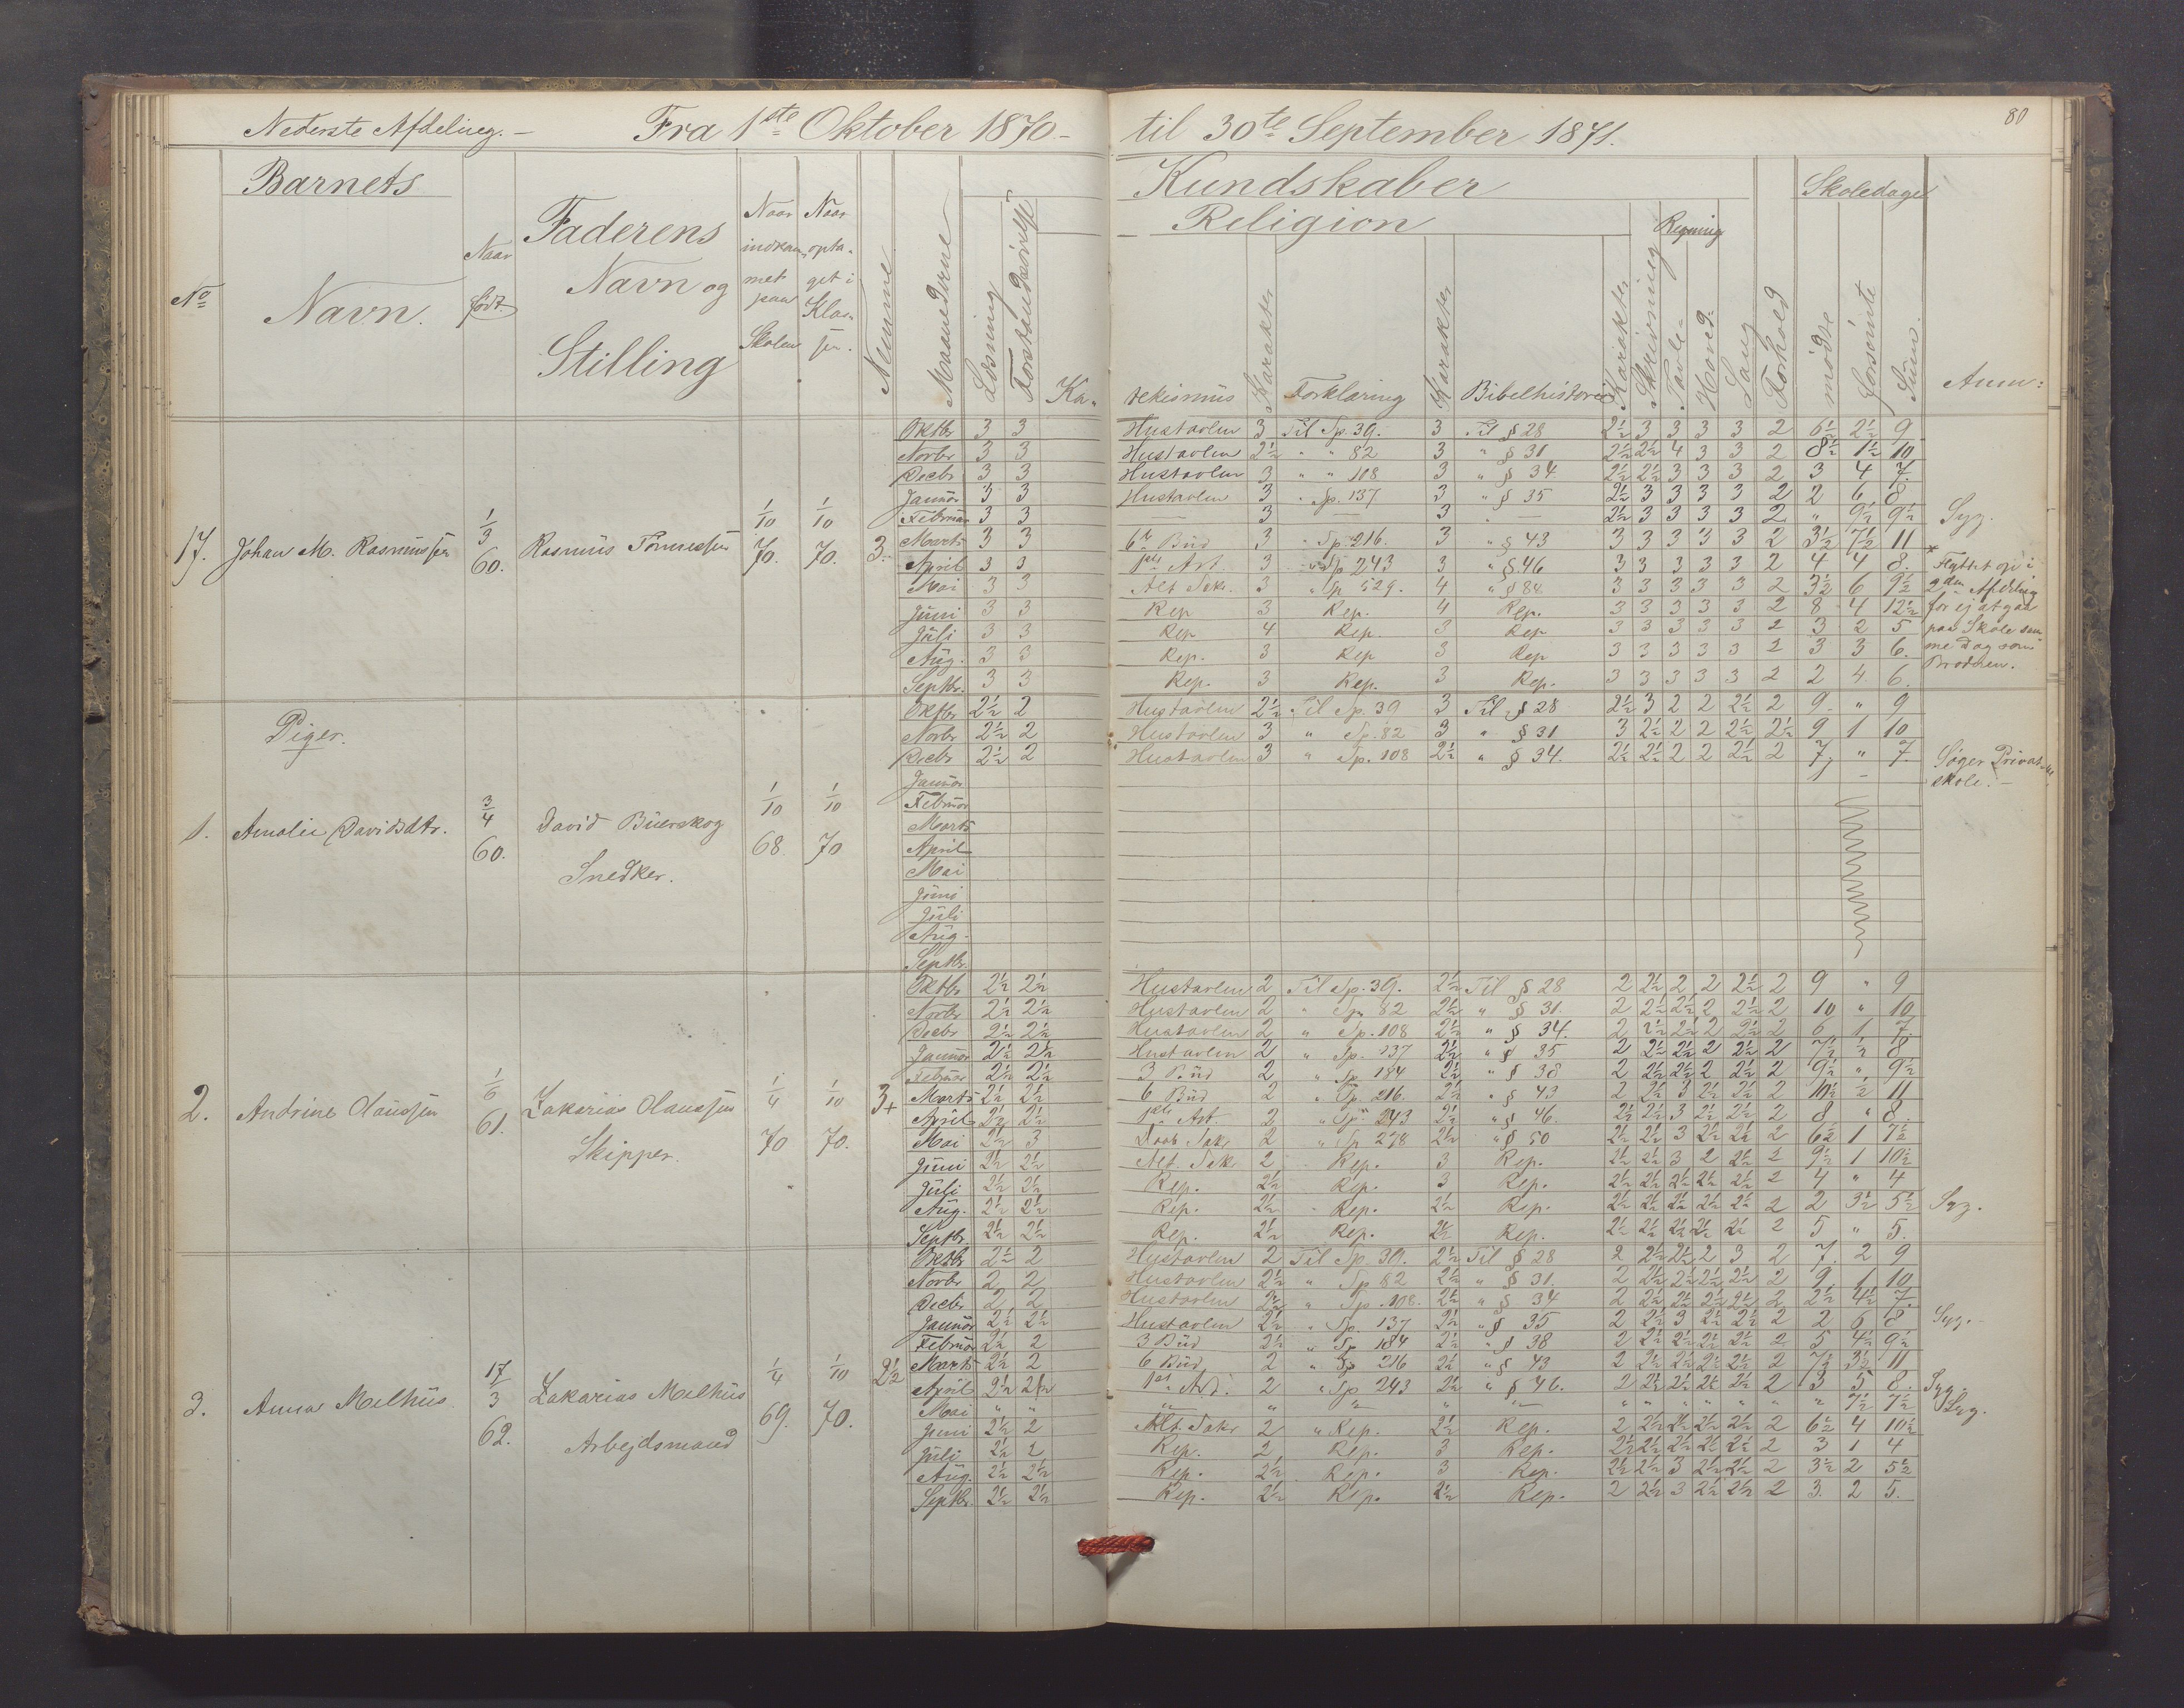 80
Nederste Afdeling. – Fra 1ste Oktober 1870 – til 30te September 1871.
Barnets Kundskaber Skoledage
Religion Regning
No Navn. Naar født. Faderens Navn og Stilling
Naar indkom- met paa Skolen
Naar opta- get i Klas- sen.
Nummer Maanederne Læsning Ka- tekismus Karakter Forklaring Karakter Bibelhistorie Karakter Skrivning Tavle- Hoved- Sang Forhold mødte forsømte Sum. Anm:
17. Johan M. Rasmussen 1/3 60. Rasmus Tønnessen 1/10 70. 1/10 70. 3.
Oktbr 3 3 Hustavlen 3 Til Sp. 39. 3 Til § 28 2½ 3 3 3 3 2 6½ 2½ 9
Novbr 3 3 Hustavlen 2½ " " 82 3 " § 31 2½ 2½ 4 3 3 2 8½ 1½ 10
Decbr 3 3 Hustavlen 3 " " 108 3 " § 34 2½ 2½ 3 3 3 2 3 4 7.
Januar 3 3 Hustavlen 3 " Sp. 137 3 " § 35 2½ 3 3 3 3 2 2 6 8
Februar 3 3 — 3 — 3 — 2½ 3 3 3 3 2 " 9½ 9½ Syg.
Marts 3 3 6te Bud 3 " Sp. 216. 3 " § 43 3 3 3 3 3 2 3½ 7½ 11
April 3 3 1ste Art. 3 " Sp 243 3 " § 46 3 3 3 3 3 2 4 4 8.
Mai 3 3 Alt. Sak. 3 " Sp 529. 4 " § 88 3 3 3 3 3 2 3½ 6 9½
Juni 3 3 Rep 3 Rep. 4 Rep. 3 3 3 3 3 2 8 4 12½
Juli 3 3 Rep 4 Rep. 3 Rep 3 3 3 3 3 2 3 2 5
Aug. 3 3 Rep. 3 Rep 3 Rep 3 3 3 3 3 2 3 3 6.
Septbr. 3 3 Rep. 3 Rep. 3 Rep. 3 3 3 3 3 2 2 4. 6.
* Flyttet op i
2den Afdeling
for ej at gaa
paa Skole sam-
me Dag som
Brodren.
Piger.
1. Amalie Davidsdtr. 3/4 60. David Buerskog Snedker. 1/10 68. 1/10 70
Oktbr 2½ 2 Hustavlen 2½ Til Sp. 39 3 Til § 28 2½ 3 2 2 2½ 2 9. " 9
Novbr 2½ 2 Hustavlen 3 " Sp. 82 3 " § 31 3 2½ 2 2 2½ 2½ 9 1 10
Decbr 2½ 2 Hustavlen 3 " Sp. 108 2½ " § 34. 2½ 2½ 2 2 2½ 2 7 " 7.
Søger Privat-
skole. –
Januar
Februar
Marts
April
Mai
Juni
Juli
Aug.
Septbr.
2. Andrine Claussen 1/6 61. Zakarias Claussen Skipper. 1/4 70 1/10 70. 3+
Oktbr 2½ 2½ Hustavlen 2 Til Sp. 39. 2½ Til § 28 2 2½ 2 2 2½ 2 9 " 9
Novbr 2½ 2½ Hustavlen 2 " Sp. 82 2½ " § 31. 2 2½ 2½ 2 2½ 2 10 " 10
Decbr 2½ 2½ Hustavlen 2 " Sp. 108 2½ " § 34. 2 2½ 2½ 2 2½ 2 6 1 7.
Januar 2½ 2½ Hustavlen 2 " Sp. 137 2½ " § 35 2 2½ 2½ 2 2½ 2 7½ ½ 8
Februar 2½ 2½ 3 Bud 2 " Sp 184 2½ " § 38 2 2½ 2½ 2 2½ 2 9½ " 9½
Marts 2½ 2½ 6 Bud 2 " Sp. 216. 2½ " § 43 2 2½ 3 2½ 2½ 2 10½ ½ 11
April 2½ 2½ 1ste Art. 2 " Sp 243 2½ " § 46. 2½ 2½ 3 2½ 2½ 2 8 " 8.
Mai 2½ 3 Daab Sak 2 " Sp 278 2½ " § 50 2½ 2½ 3 2½ 2½ 2 6½ 1 7½
Juni 2½ 2½ Alt. Sak 2 Rep. 3 Rep. 2½ 2½ 3 2 2½ 2 9½ 1 10½
Juli 2½ 2½ Rep. 2½ Rep. 3 Rep. 2½ 2½ 2½ 2½ 2½ 2 4 " 4
Aug. 2½ 2½ Rep. 2½ Rep. 2½ Rep. 2½ 2½ 2½ 2½ 2½ 2 2 3½ 5½ Syg.
Septbr. 2½ 2½ Rep. 2½ Rep. 2½ Rep. 2½ 2½ 2½ 2½ 2½ 2 5 " 5.
3. Anna Melhus 17/3 62. Zakarias Melhus Arbejdsmand 1/4 69. 1/10 70. 2½
Oktbr 2½ 2 Hustavlen 2 Til Sp. 39. 2½ Til § 28 2 2½ 2½ 2 3 2 7. 2 9
Novbr 2 2 Hustavlen 2½ " Sp 82 2½ " § 31. 2 2½ 2½ 2½ 2½ 2 9. 1 10
Decbr 2 2 Hustavlen 2½ " Sp. 108. 2½ " § 34 2 2½ 2½ 2½ 2½ 2 2½ 4½ 7.
Januar 2½ 2½ Hustavlen 2½ " Sp. 137 2½ " § 35 2 2½ 3 2½ 2½ 2 2 6 8 Syg.
Februar 2½ 2 3 Bud 2½ " Sp 184 2½ " § 38 2 2½ 2½ 2½ 2½ 2 5 4½ 9½
Marts 2½ 2 6 Bud 2 " Sp 216 2½ " § 43 2 2½ 2½ 2½ 2½ 2 7½ 3½ 11
April 2½ 2½ 1ste Art. 2 " Sp 243 2½ " § 46. 2 2½ 2½ 2½ 2½ 2 3 5 8. Syg.
Mai " " " " " " " " " " " " " " 7½ 7½ Syg.
Juni 2½ 2 Alt. Sakr 2 " Rep. 2½ Rep. 2 2½ 2½ 2½ 2½ 2 6½ 4 10½
Juli 2½ 2 Rep. 2 Rep. 3 Rep. 2½ 2½ 2½ 2½ 2½ 2 3 1 4
Aug. 2½ 2½ Rep. 2½ Rep. 3 Rep. 2½ 2½ 3 2½ 2½ 2 3½ 2 5½
Septbr. 2½ 2½ Rep. 2½ Rep. 2½ Rep. 2 2½ 3 2½ 2½ 2 3. 2 5.